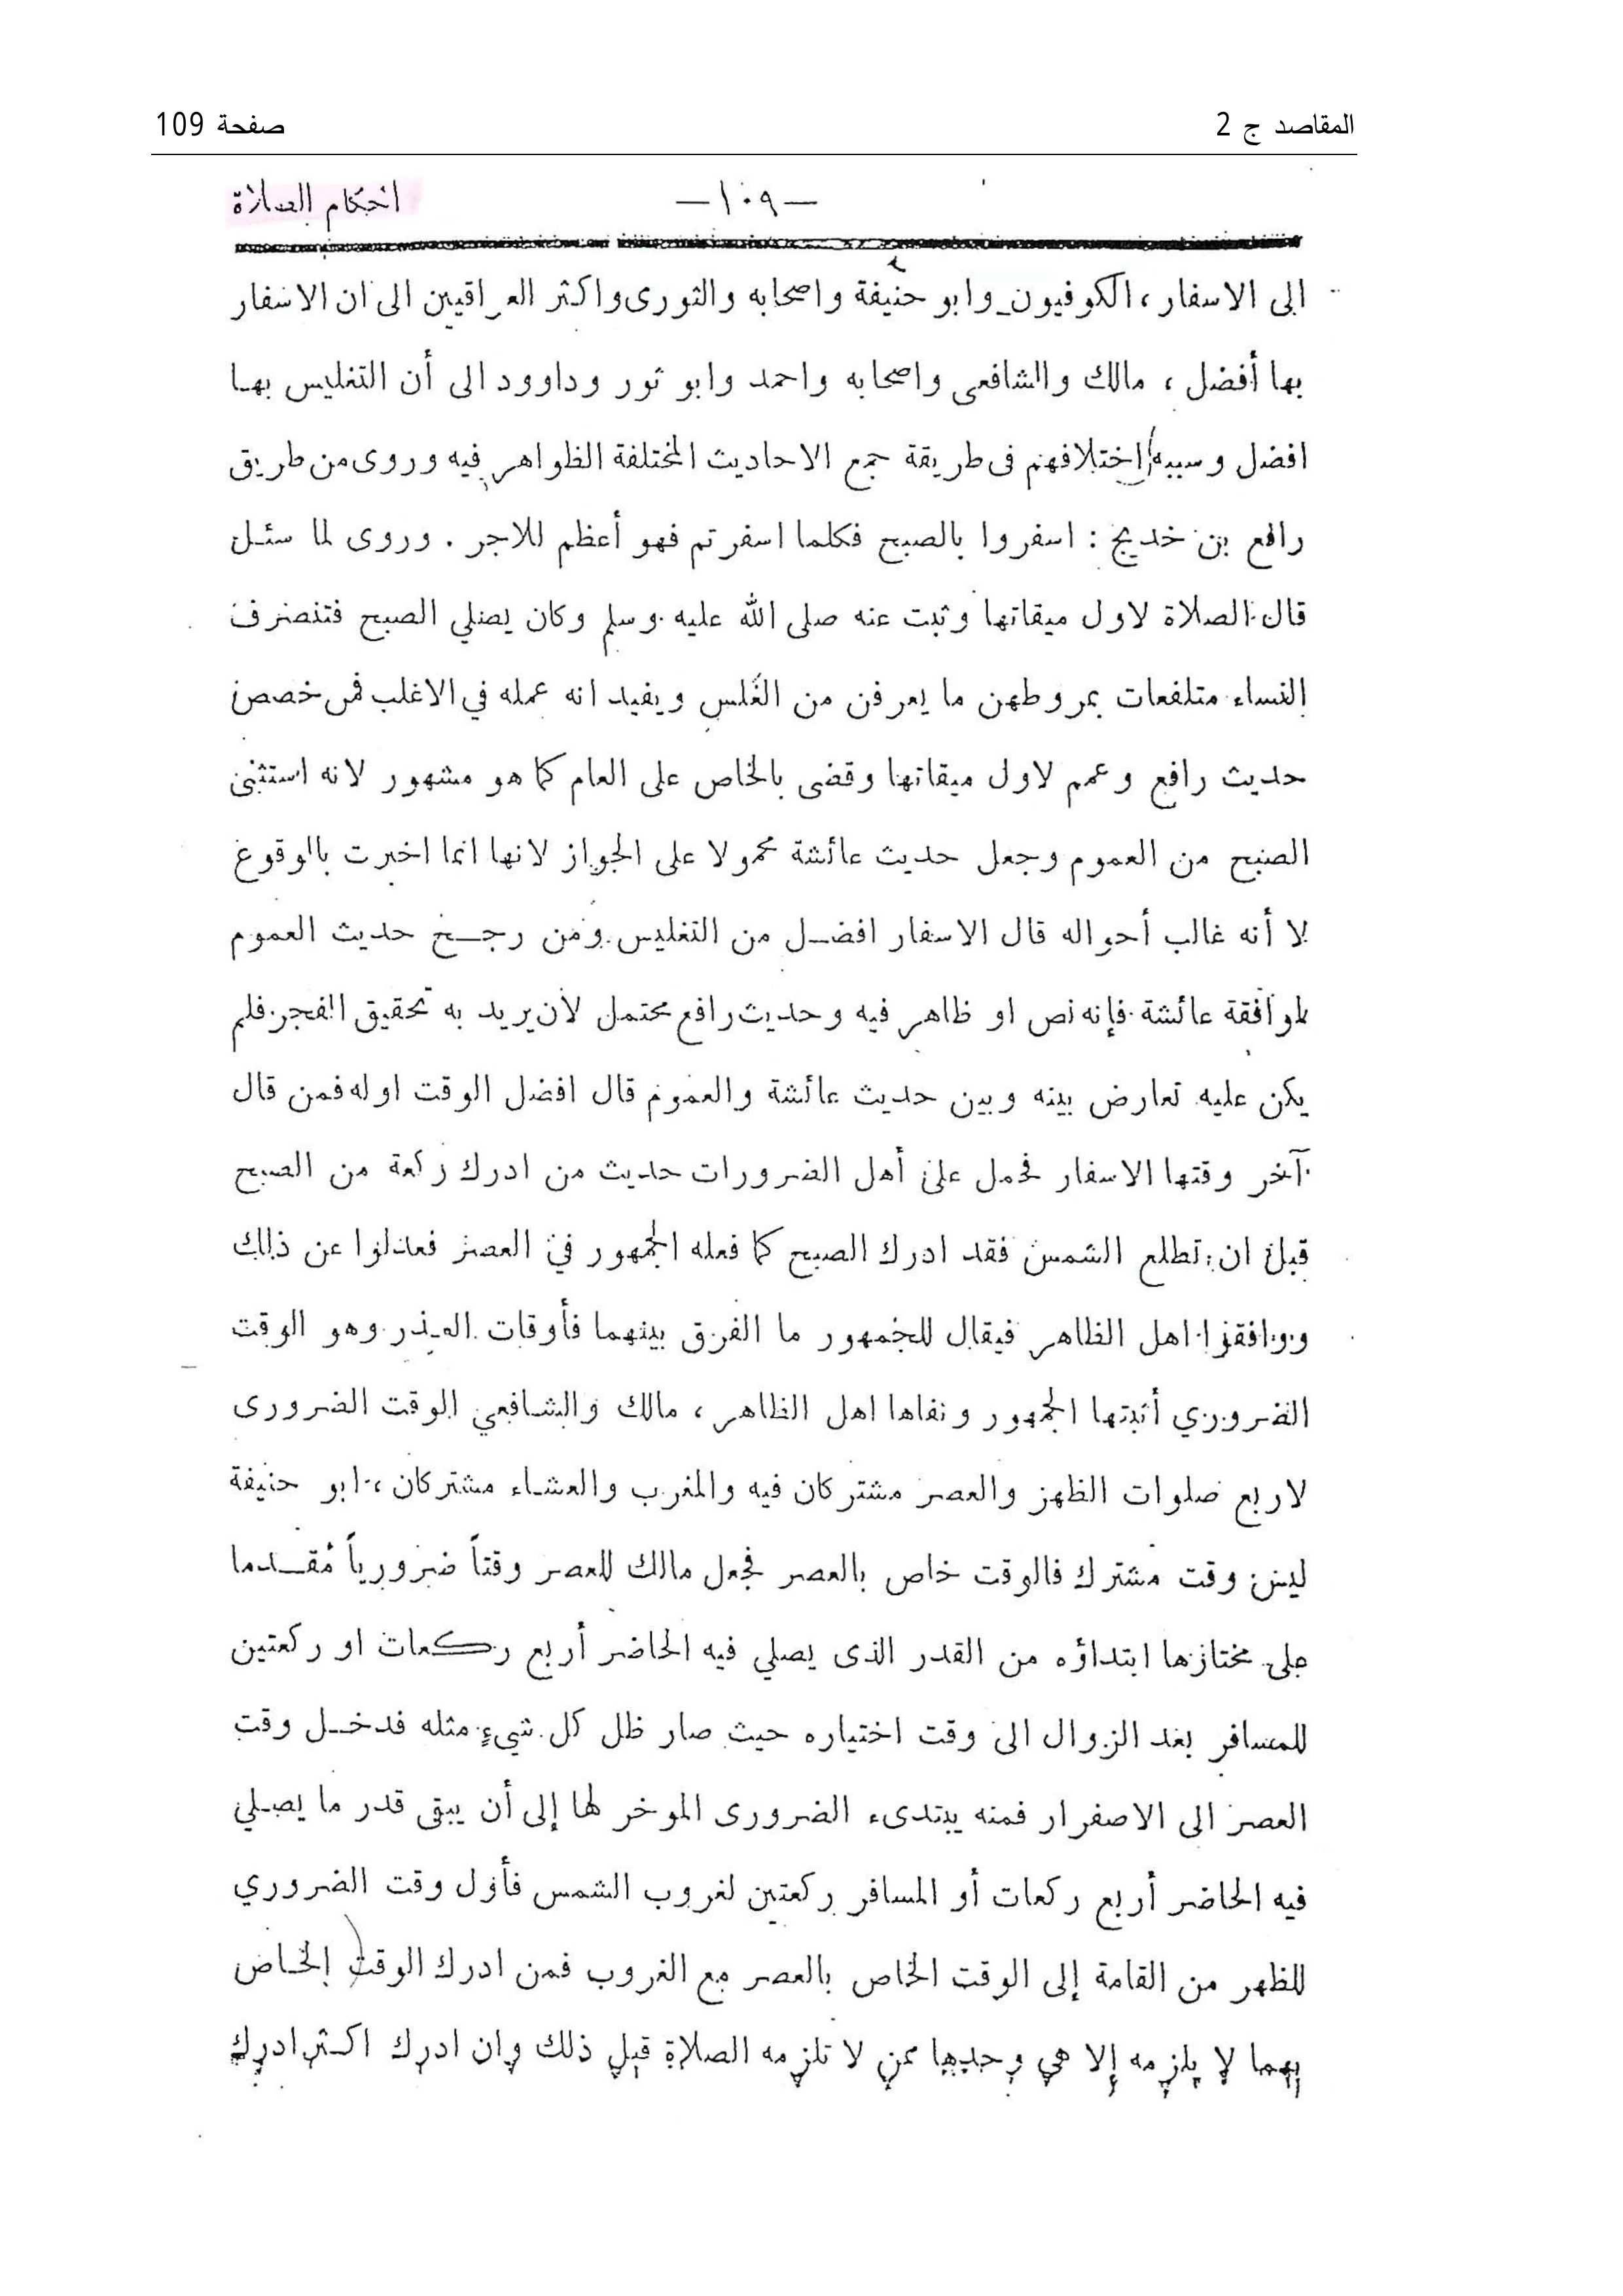 المقاصد ج 2
صفحة 109
احكام الصلاة
—١٠٩—
الى الاسفار ، الكوفيون وابو حنيفة واصحابه والثورى واكثر العراقيين الى ان الاسفار
بها أفضل ، مالك والشافعى واصحابه واحمد وابو ثور وداوود الى أن التغليس بها
افضل وسببه اختلافهم فى طريقة جمع الاحاديث المختلفة الظواهر فيه وروى من طريق
رافع بن خديج : اسفروا بالصبح فكلما اسفرتم فهو أعظم للاجر . وروى لما سئل
قال الصلاة لاول ميقاتها وثبت عنه صلى الله عليه وسلم وكان يصلي الصبح فتنصرف
النساء متلفعات بمروطهن ما يعرفن من الغلس ويفيد انه عمله في الاغلب فمن خصص
حديث رافع وعمم لاول ميقاتها وقضى بالخاص على العام كما هو مشهور لانه استثنى
الصبح من العموم وجعل حديث عائشة محمولا على الجواز لانها انما اخبرت بالوقوع
لا أنه غالب أحواله قال الاسفار افضل من التغليس ومن رجح حديث العموم
لموافقة عائشة فإنه نص او ظاهر فيه وحديث رافع محتمل لان يريد به تحقيق الفجر فلم
يكن عليه تعارض بينه وبين حديث عائشة والعموم قال افضل الوقت اوله فمن قال
آخر وقتها الاسفار فحمل على أهل الضرورات حديث من ادرك ركعة من الصبح
قبل ان تطلع الشمس فقد ادرك الصبح كما فعله الجمهور في العصر فعدلوا عن ذلك
ووافقوا اهل الظاهر فيقال للجمهور ما الفرق بينهما فأوقات العذر وهو الوقت
الضروري أثبتها الجمهور ونفاها اهل الظاهر ، مالك والشافعي الوقت الضرورى
لاربع صلوات الظهر والعصر مشتركان فيه والمغرب والعشاء مشتركان ، ابو حنيفة
ليس وقت مشترك فالوقت خاص بالعصر فجعل مالك للعصر وقتاً ضرورياً مُقدما
على مختارها ابتداؤه من القدر الذى يصلي فيه الحاضر أربع ركعات او ركعتين
للمسافر بعد الزوال الى وقت اختياره حيث صار ظل كل شيءٍ مثله فدخل وقت
العصر الى الاصفرار فمنه يبتدىء الضرورى الموخر لها إلى أن يبقى قدر ما يصلي
فيه الحاضر أربع ركعات أو المسافر ركعتين لغروب الشمس فأول وقت الضروري
للظهر من القامة إلى الوقت الخاص بالعصر مع الغروب فمن ادرك الوقت الخاص
بهما لا يلزمه إلا هي وحدها ممن لا تلزمه الصلاة قبل ذلك وان ادرك اكثر ادرك